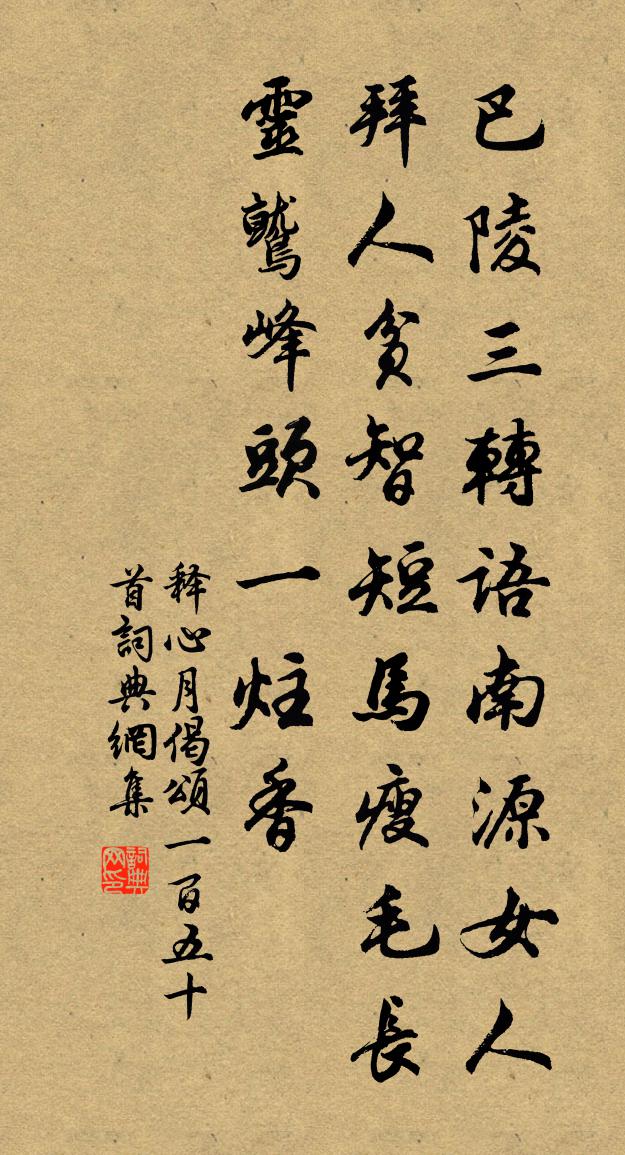 巴陵三轉語南源女人
拜人貧智短馬瘦毛長
靈鷲峰頭一炷香
释心月偈頌一百五十
首詞典網集
詞典网印